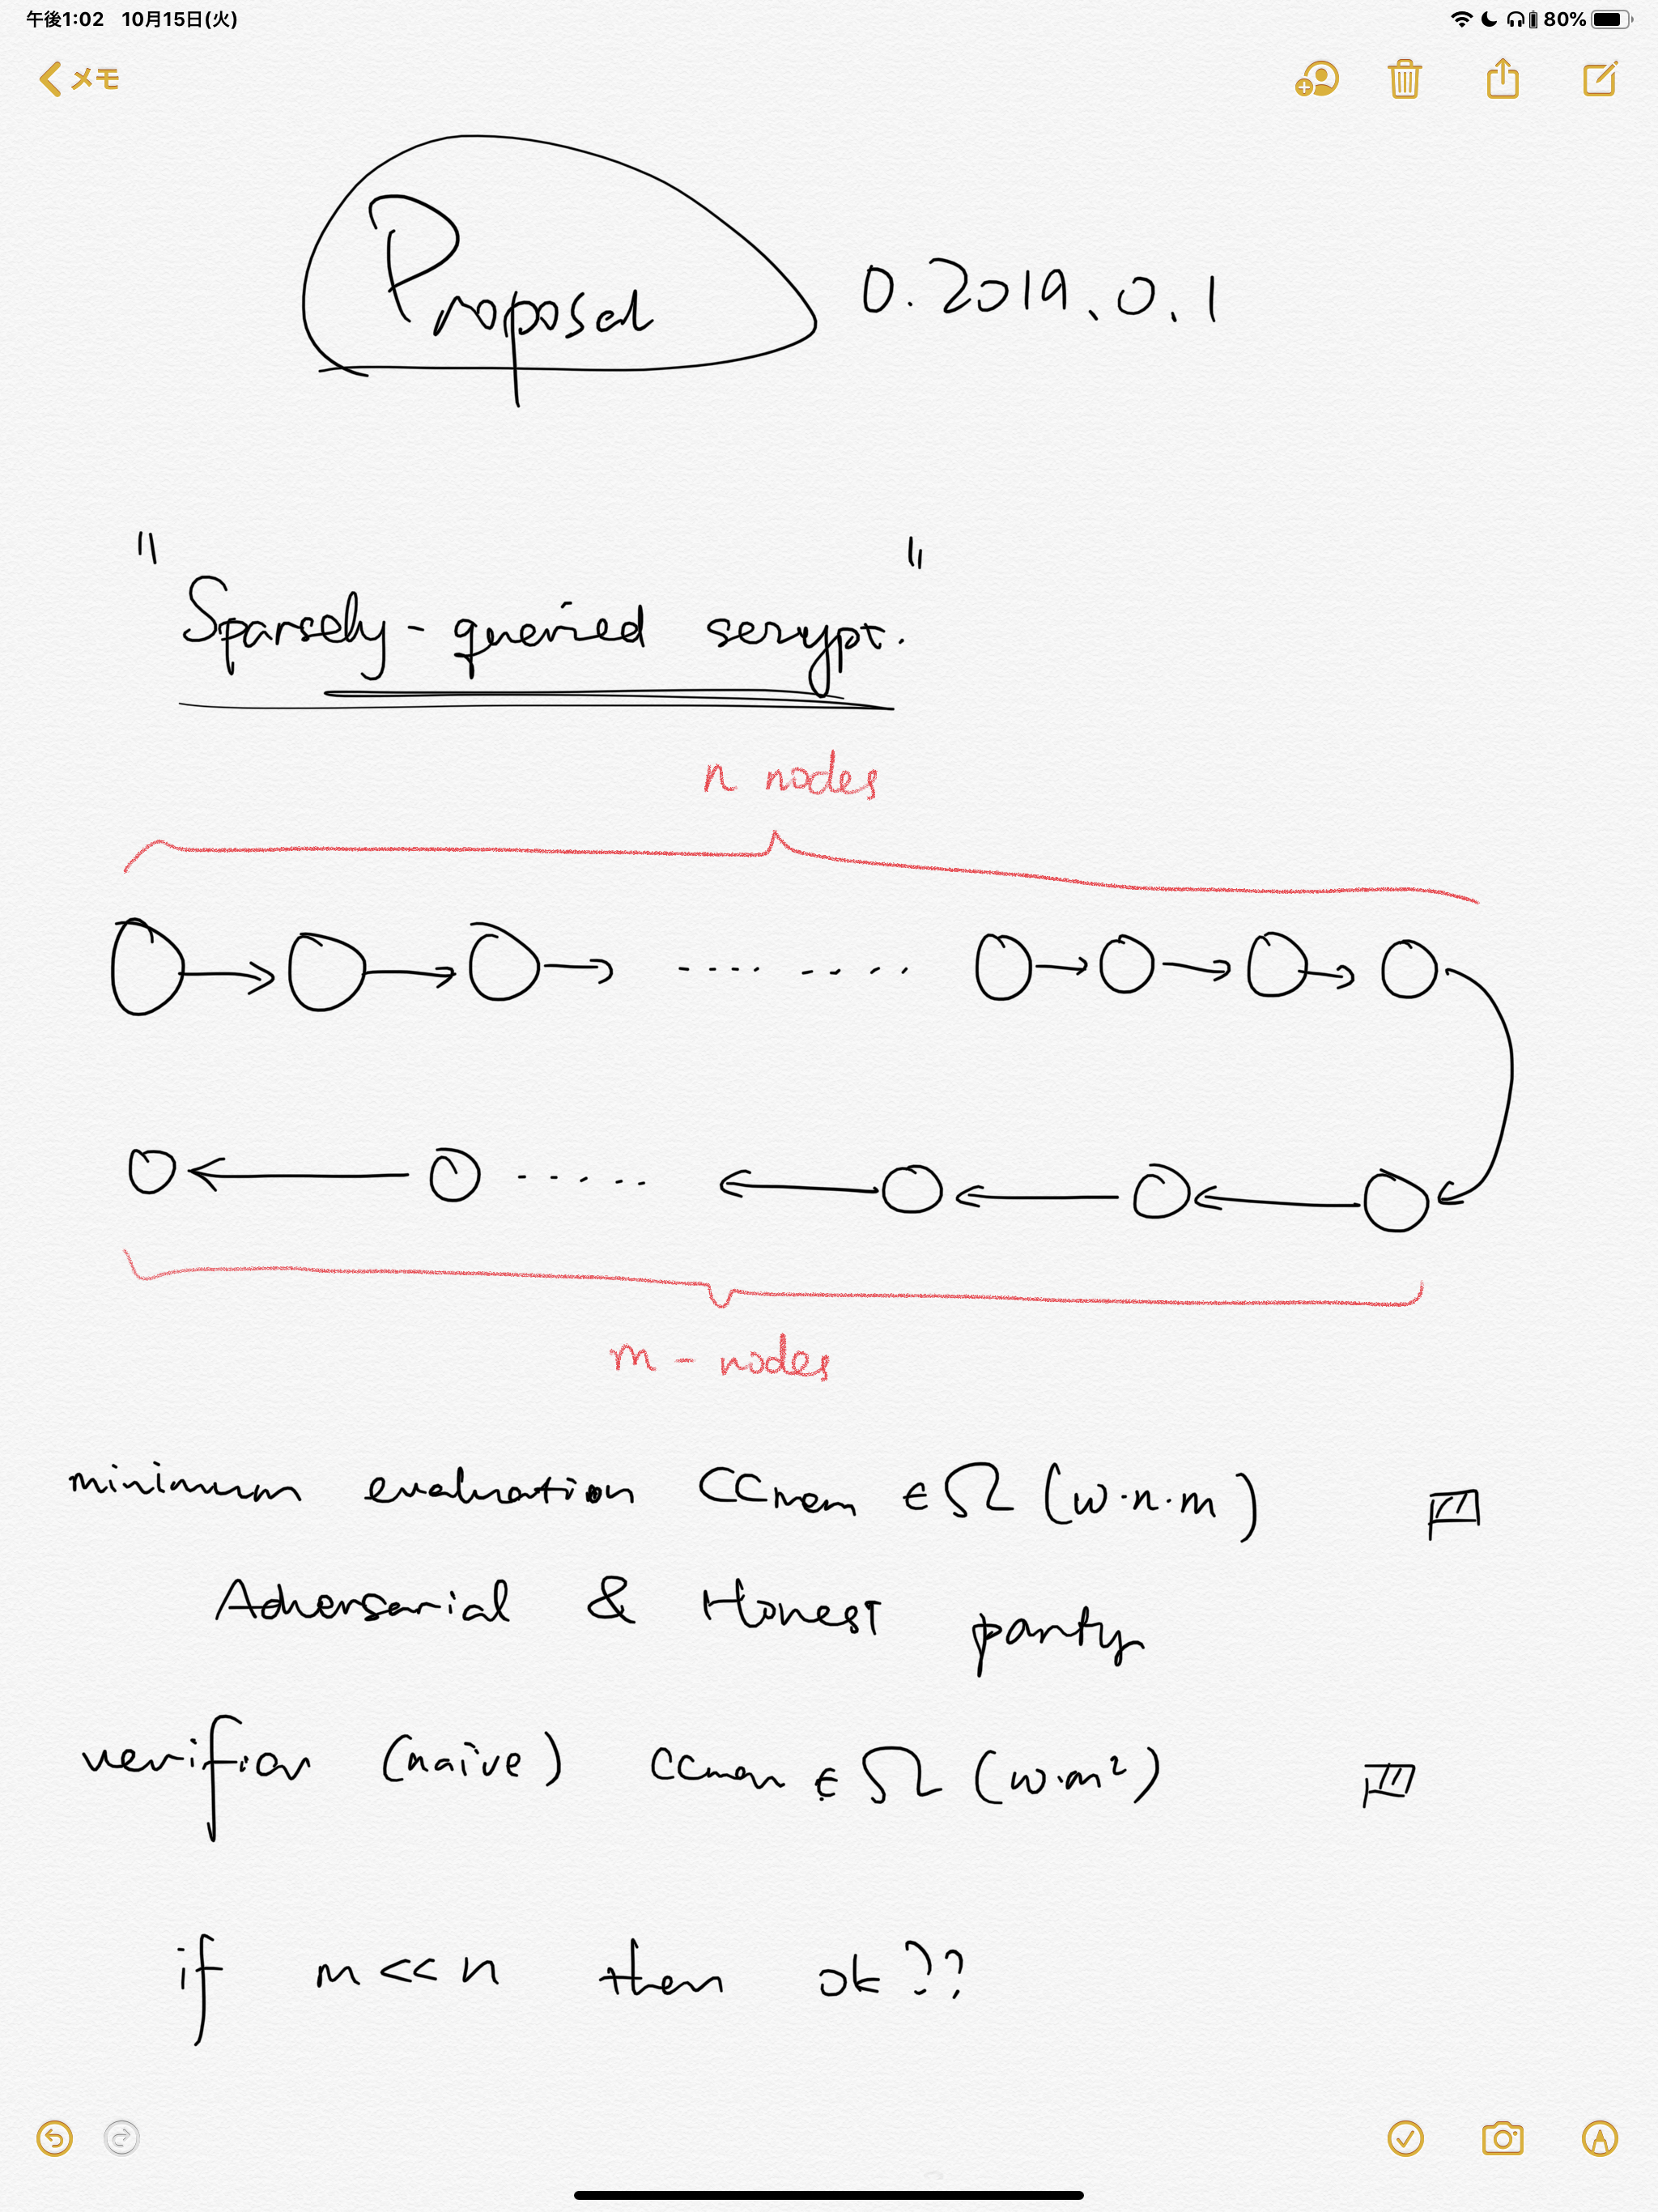 午後1:02 10月15日(火) 80%
メモ
Proposal 0.2019.0.1
"Sparsely-queried scrypt."
n nodes
m - nodes
minimum evaluation CCmem ∈ Ω (w·n·m)
Adversarial & Honest party
verifier (naïve) CCmem ∈ Ω (w·m²)
if m << n then ok??